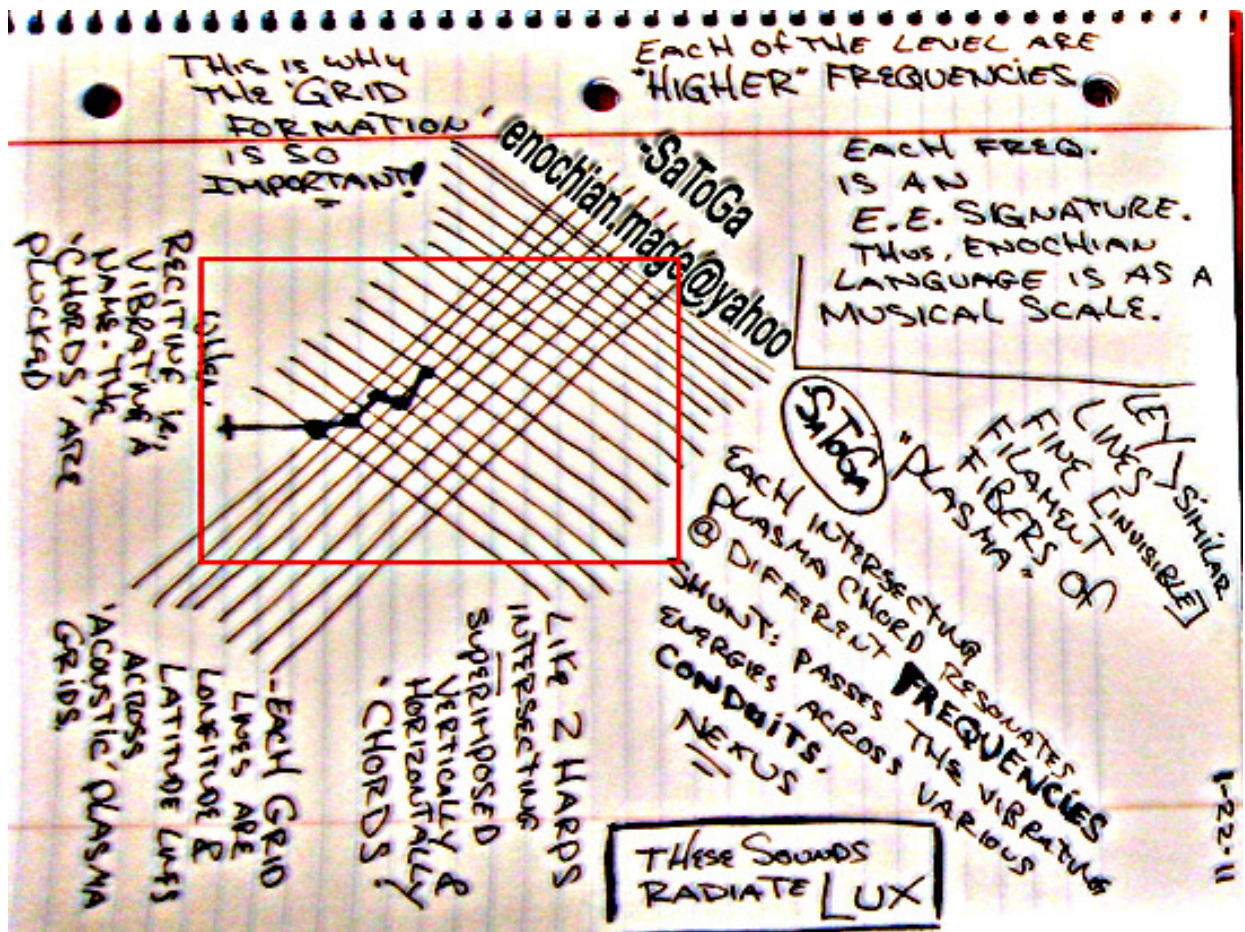 THIS IS WHY
THE 'GRID
FORMATION'
IS SO
IMPORTANT!
EACH OF THE LEVEL ARE
"HIGHER" FREQUENCIES
EACH FREQ.
IS AN
E.E. SIGNATURE.
THUS, ENOCHIAN
LANGUAGE IS AS A
MUSICAL SCALE.
-SaToGa
enochian.mage@yahoo
RECITING
VIBRATING A
NAME. THE
'CHORDS' ARE
PLUCKED
SaToGa
LEY
LINES
SIMILAR
FINE [INVISIBLE]
FILAMENT
FIBERS OF
"PLASMA"
EACH INTERSECTING
PLASMA CHORD RESONATES
@ DIFFERENT FREQUENCIES
SHUNT: PASSES THE VIBRATING
ENERGIES ACROSS VARIOUS
CONDUITS.
NEXUS
LIKE 2 HARPS
INTERSECTING
SUPERIMPOSED
VERTICALLY &
HORIZONTALLY
'CHORDS'
--EACH GRID
LINES ARE
LONGITUDE &
LATITUDE LINES
ACROSS
'ACOUSTIC' PLASMA
GRIDS.
THESE SOUNDS
RADIATE LUX
1-22-11